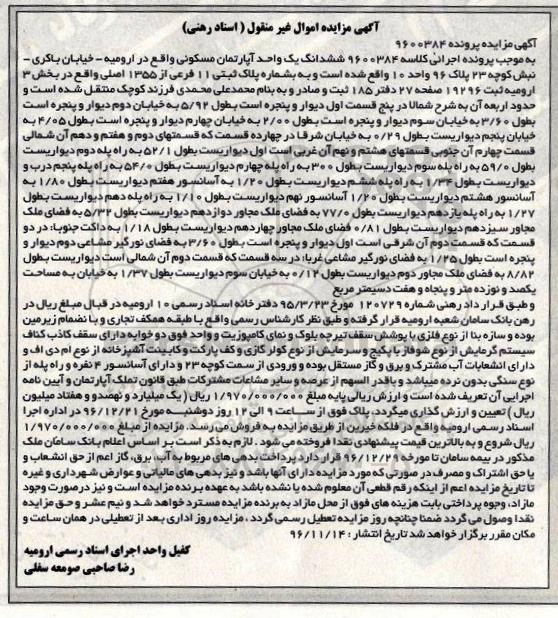 آگهی مزایده اموال غیر منقول ( اسناد رهنی)
آگهی مزایده پرونده ۹۶۰۰۳۸۴
به موجب پرونده اجرائی کلاسه ۹۶۰۰۳۸۴ ششدانگ یک واحد آپارتمان مسکونی واقع در ارومیه - خیابان باکری -
نبش کوچه ۲۳ پلاک ۹۶ واحد ۱۰ واقع شده است و به بشماره پلاک ثبتی ۱۱ فرعی از ۱۳۵۵ اصلی واقع در بخش ۳
ارومیه ثبت ۱۹۲۹۶ صفحه ۲۷ دفتر ۱۸۵ ثبت و صادر و به بنام محمدعلی محمدی فرزند کوچک منتقل شده است و
حدود اربعه آن به شرح شمالا در پنج قسمت اول دیوار و پنجره است بطول ۵/۹۲ به خیابان دوم دیوار و پنجره است
بطول ۳/۶۰ به خیابان سوم دیوار و پنجره است بطول ۲/۰۰ به خیابان چهارم دیوار و پنجره است بطول ۴/۰۵ به
خیابان پنجم دیواریست بطول ۰/۲۹ به خیابان شرقا در چهارده قسمت که قسمتهای دوم و هفتم و دهم آن شمالی
قسمت چهارم آن جنوبی قسمتهای هشتم و نهم آن غربی است اول دیواریست بطول ۵۲/۱ به راه پله دوم دیواریست
بطول ۵۹/۰ به راه پله سوم دیواریست بطول ۳۰۰ به راه پله چهارم دیواریست بطول ۵۴/۰ به راه پله پنجم درب و
دیواریست بطول ۱/۳۴ به راه پله ششم دیواریست بطول ۱/۲۰ به آسانسور هفتم دیواریست بطول ۱/۸۰ به
آسانسور هشتم دیواریست بطول ۱/۲۰ آسانسور نهم دیواریست بطول ۱/۱۰ به راه پله دهم دیواریست بطول
۱/۲۷ به راه پله یازدهم دیواریست بطول ۷۷/۰ به فضای ملک مجاور دوازدهم دیواریست بطول ۵/۳۲ به فضای ملک
مجاور سیزدهم دیواریست بطول ۰/۸۱ فضای ملک مجاور چهاردهم دیواریست بطول ۱/۱۸ به داکت جنوبا: در دو
قسمت که قسمت دوم آن شرقی است اول دیوار و پنجره است بطول ۳/۶۰ به فضای نورگیر مشاعی دوم دیوار و
پنجره است بطول ۱/۲۵ به فضای نورگیر مشاعی غربا: در سه قسمت که قسمت دوم آن شمالی است دیواریست بطول
۸/۸۲ به فضای ملک مجاور دوم دیواریست بطول ۰/۱۲ به خیابان سوم دیواریست بطول ۱/۳۷ به خیابان به مساحت
یکصد و نوزده متر و پنجاه و هفت دسیمتر مربع
و طبق قرار داد رهنی شماره ۱۲۰۷۲۹ مورخ ۹۵/۳/۲۳ دفتر خانه اسناد رسمی ۱۰ ارومیه در قبال مبلغ ریال در
رهن بانک سامان شعبه ارومیه قرار گرفته و طبق نظر کارشناس رسمی واقع با طبقه همکف تجاری و با انضمام زیرزمین
بوده و سازه بنا از نوع فلزی با پوشش سقف تیرچه بلوک و نمای کامپوزیت و واحد فوق دو خوابه دارای سقف کاذب کناف
سیستم گرمایش از نوع شوفاژ با پکیج و سرمایش از نوع کولر گازی و کف پارکت و کابینت آشپزخانه از نوع ام دی اف و
دارای انشعابات آب مشترک و برق و گاز مستقل بوده و ورودی از سمت کوچه ۲۳ و دارای آسانسور ۴ نفره و راه پله از
نوع سنگی بدون نرده میباشد و باقدر السهم از عرصه و سایر مشاعات مشترکات طبق قانون تملک آپارتمان و آیین نامه
اجرایی آن تعریف شده است و ارزش ریالی پایه مبلغ ۱/۹۷۰/۰۰۰/۰۰۰ ریال ( یک میلیارد و نهصدو و هفتاد میلیون
ریال ) تعیین و ارزش گذاری میگردد. پلاک فوق از ساعت ۹ الی ۱۲ روز دوشنبه مورخ ۹۶/۱۲/۲۱ در اداره اجرا
اسناد رسمی ارومیه واقع در فلکه خیرین از طریق مزایده به فروش می رسد. مزایده از مبلغ ۱/۹۷۰/۰۰۰/۰۰۰
ریال شروع و به بالاترین قیمت پیشنهادی نقدا فروخته می شود . لازم به ذکر است بر اساس اعلام بانک سامان ملک
مذکور در بیمه سامان تا مورخه ۹۶/۱۲/۲۹ قرار دارد. پرداخت بدهی های مربوط به آب، برق، گاز اعم از حق انشعاب و
یا حق اشتراک و مصرف در صورتی که مورد مزایده دارای آنها باشد و نیز بدهی های مالیاتی و عوارض شهرداری و غیره
تا تاریخ مزایده اعم از اینکه رقم قطعی آن معلوم شده یا نشده باشد به عهده برنده مزایده است و نیز در صورت وجود
مازاد، وجوه پرداختی بابت هزینه های فوق از محل مازاد به برنده مزایده مسترد خواهد شد و نیم عشر و حق مزایده
نقدا وصول می گردد ضمنا چنانچه روز مزایده تعطیل رسمی گردد ، مزایده روز اداری بعد از تعطیلی در همان ساعت و
مکان مقرر برگزار خواهد شد تاریخ انتشار : ۹۶/۱۱/۱۴
کفیل واحد اجرای اسناد رسمی ارومیه
رضا صاحبی صومعه سفلی